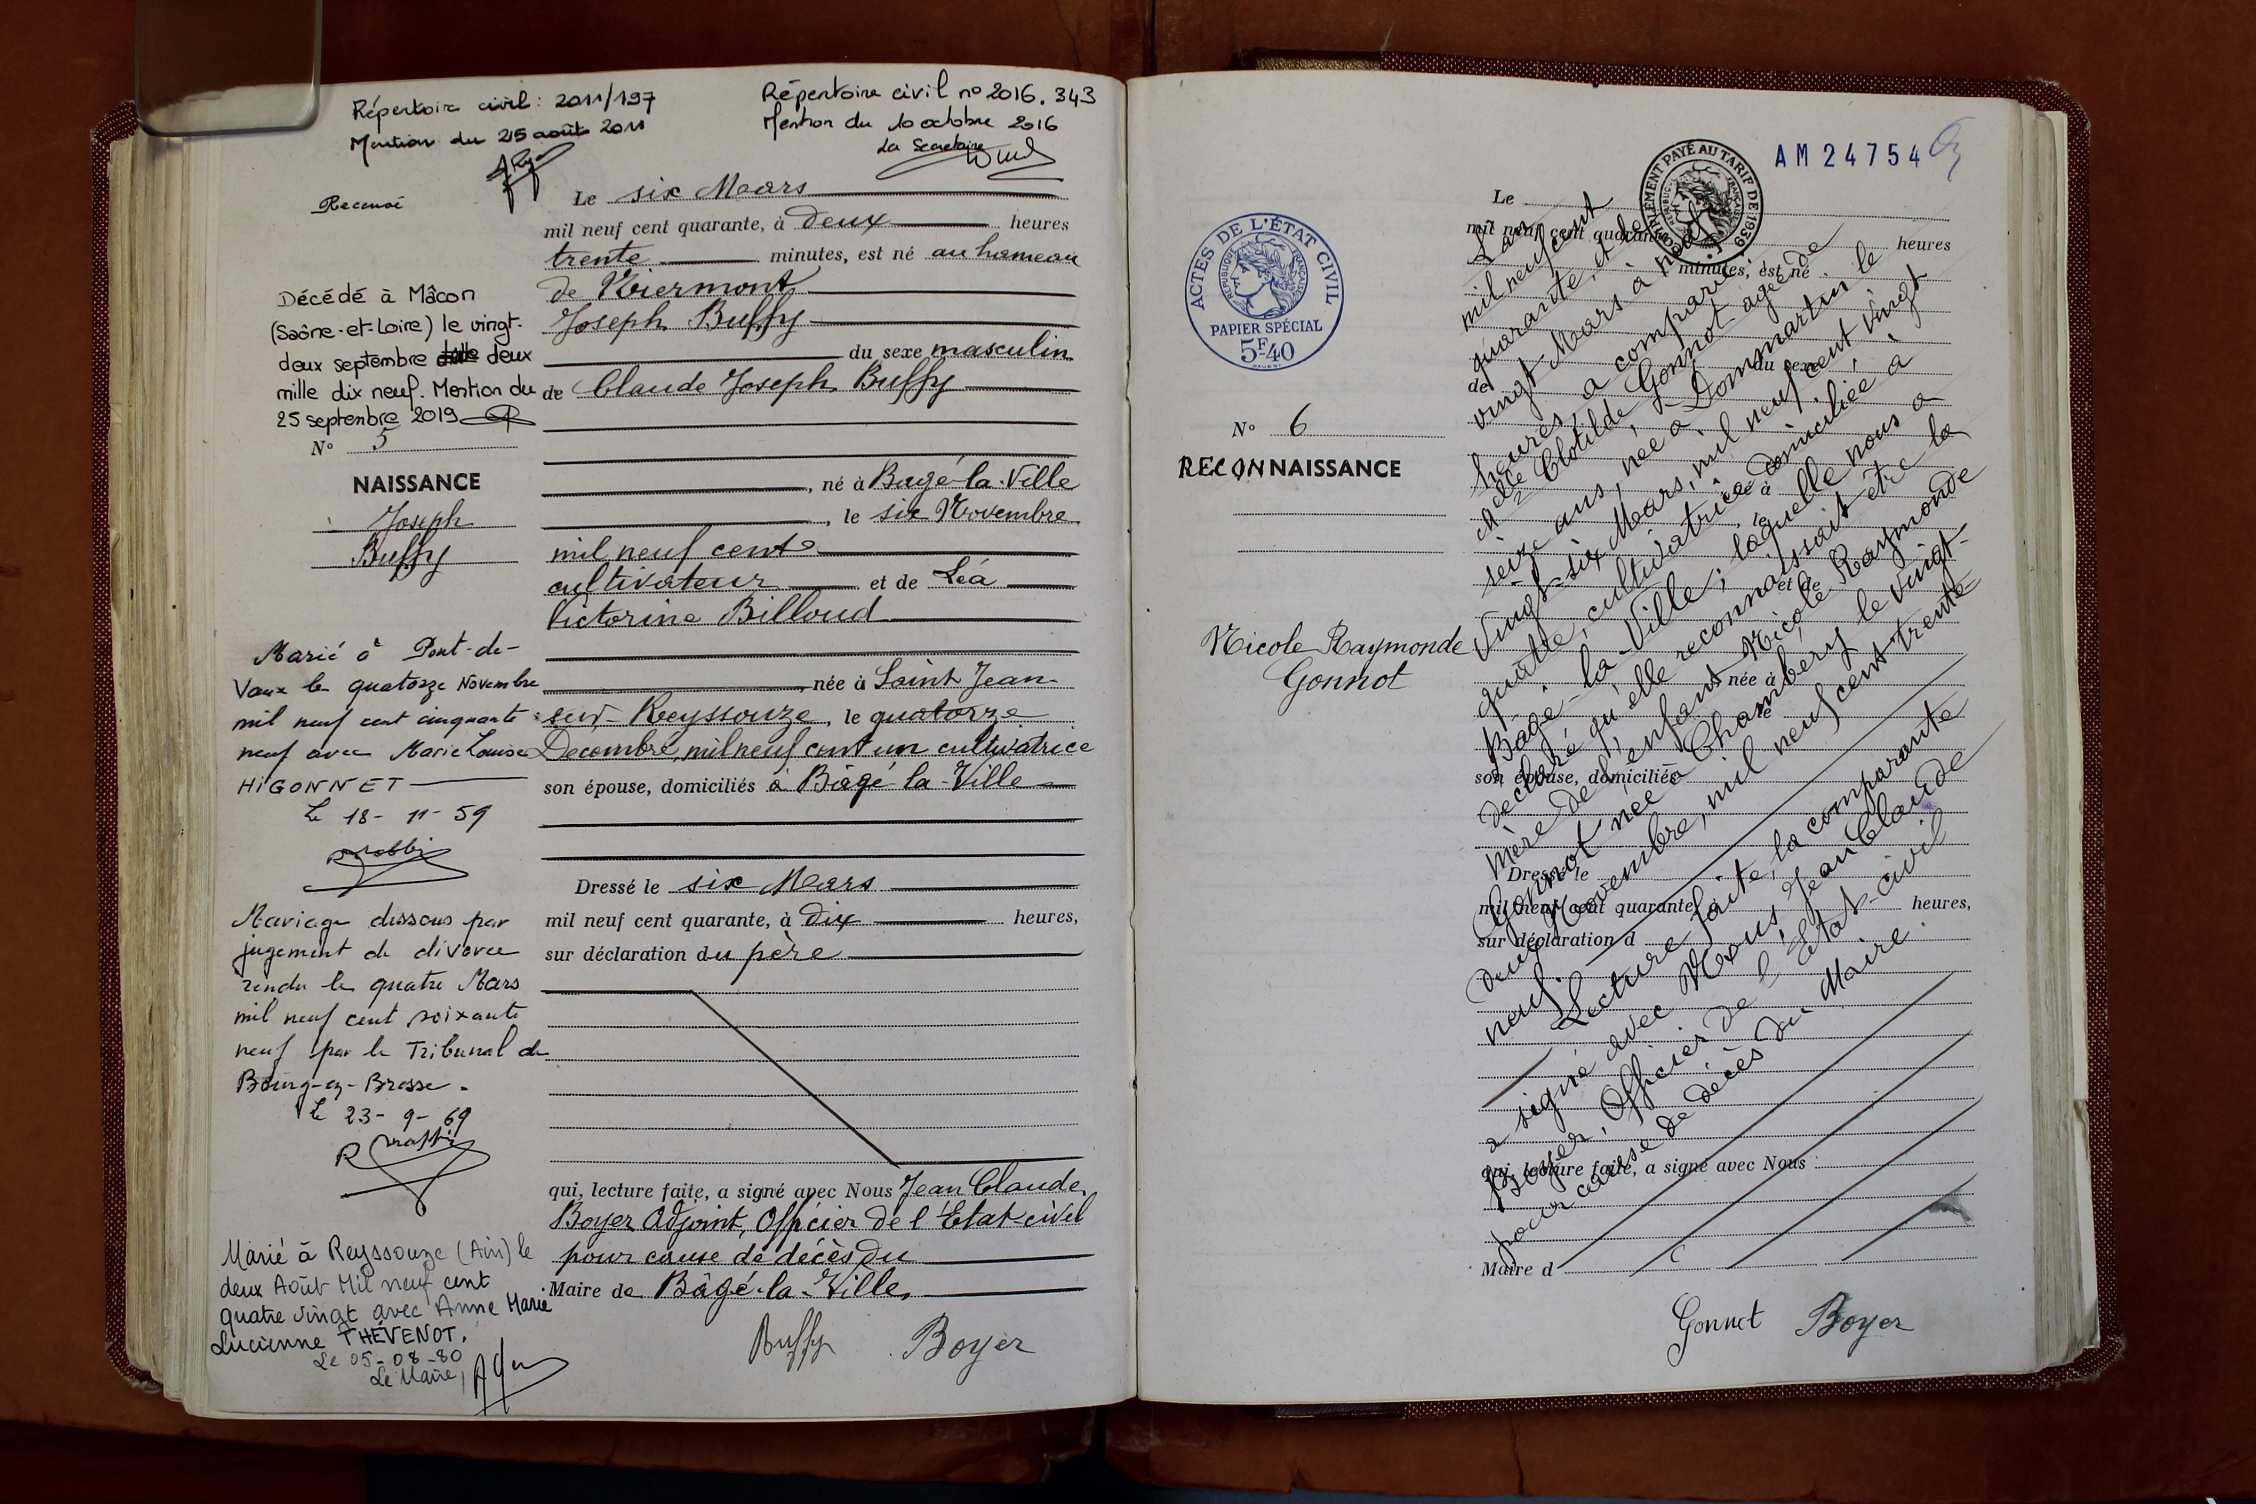 Répertoire civil : 2011/197
Mention du 25 août 2011
Répertoire civil no 2016. 343
Mention du 10 octobre 2016
La Secrétaire
Recensé
Décédé à Mâcon
(Saône-et-Loire) le vingt-
deux septembre deux
mille dix neuf. Mention du
25 septembre 2019
No 5
NAISSANCE
Joseph
Buffy
Marié à Pont-de-
Vaux le quatorze Novembre
mil neuf cent cinquante
neuf avec Marie Louise
HIGONNET
Le 18-11-59
Mariage dissous par
jugement de divorce
rendu le quatre Mars
mil neuf cent soixante
neuf par le Tribunal de
Bourg-en-Bresse.
Le 23-9-69
Marié à Reyssouze (Ain) le
deux Août Mil neuf cent
quatre vingt avec Anne Marie
Lucienne THÉVENOT.
Le 05-08-80
Le Maire,
Le six Mars
mil neuf cent quarante, à deux heures
trente minutes, est né au hameau
de Niermont
Joseph Buffy
du sexe masculin
de Claude Joseph Buffy
, né à Bagé-la-Ville
, le six Novembre
mil neuf cent
cultivateur et de Léa
Victorine Billoud
, née à Saint Jean-
sur-Reyssouze, le quatorze
Décembre, mil neuf cent un cultivatrice
son épouse, domiciliés à Bâgé-la-Ville
Dressé le six Mars
mil neuf cent quarante, à dix heures,
sur déclaration du père
qui, lecture faite, a signé avec Nous Jean Claude
Boyer Adjoint, Officier de l'Etat-civil
pour cause de décès du
Maire de Bâgé-la-Ville,
Buffy Boyer
AM 24754
TIMBREMENT PAYÉ AU TARIF DE 1939
ACTES DE L'ÉTAT CIVIL
RÉPUBLIQUE FRANÇAISE
PAPIER SPÉCIAL
5F-40
No 6
RECONNAISSANCE
Nicole Raymonde
Gonnot
Le
mil neuf cent quarante, à heures
minutes, est né
du sexe
de
né à
, le
et de
née à
le
son épouse, domiciliés
Dressé le
mil neuf cent quarante, à heures,
sur déclaration d
qui, lecture faite, a signé avec Nous
Maire d
L'an
mil neuf cent
quarante, et le
vingt Mars à neuf
heures, a comparu
Melle Clotilde Gonnot âgée de
seize ans, née à Dommartin le
vingt-six Mars, mil neuf cent vingt
quatre, cultivatrice domiciliée à
Bâgé-la-Ville; laquelle nous a
déclaré qu'elle reconnaissait être la
mère de l'enfant Nicole Raymonde
Gonnot née à Chambéry le vingt-
deux Novembre, mil neuf cent trente
neuf.
Lecture faite, la comparante
a signé avec Nous, Jean Claude
Boyer, Officier de l'Etat-civil
pour cause de décès du Maire.
Gonnot Boyer